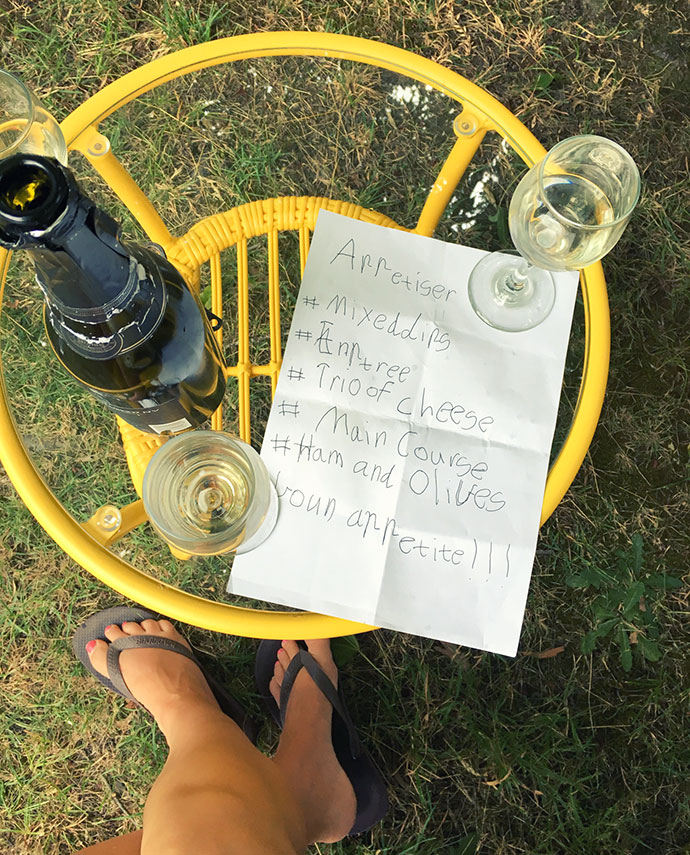 Appetiser
# Mixeddips
# Enptree
# Trio of cheese
# Main Course
# Ham and Olives
boun appetite!!!